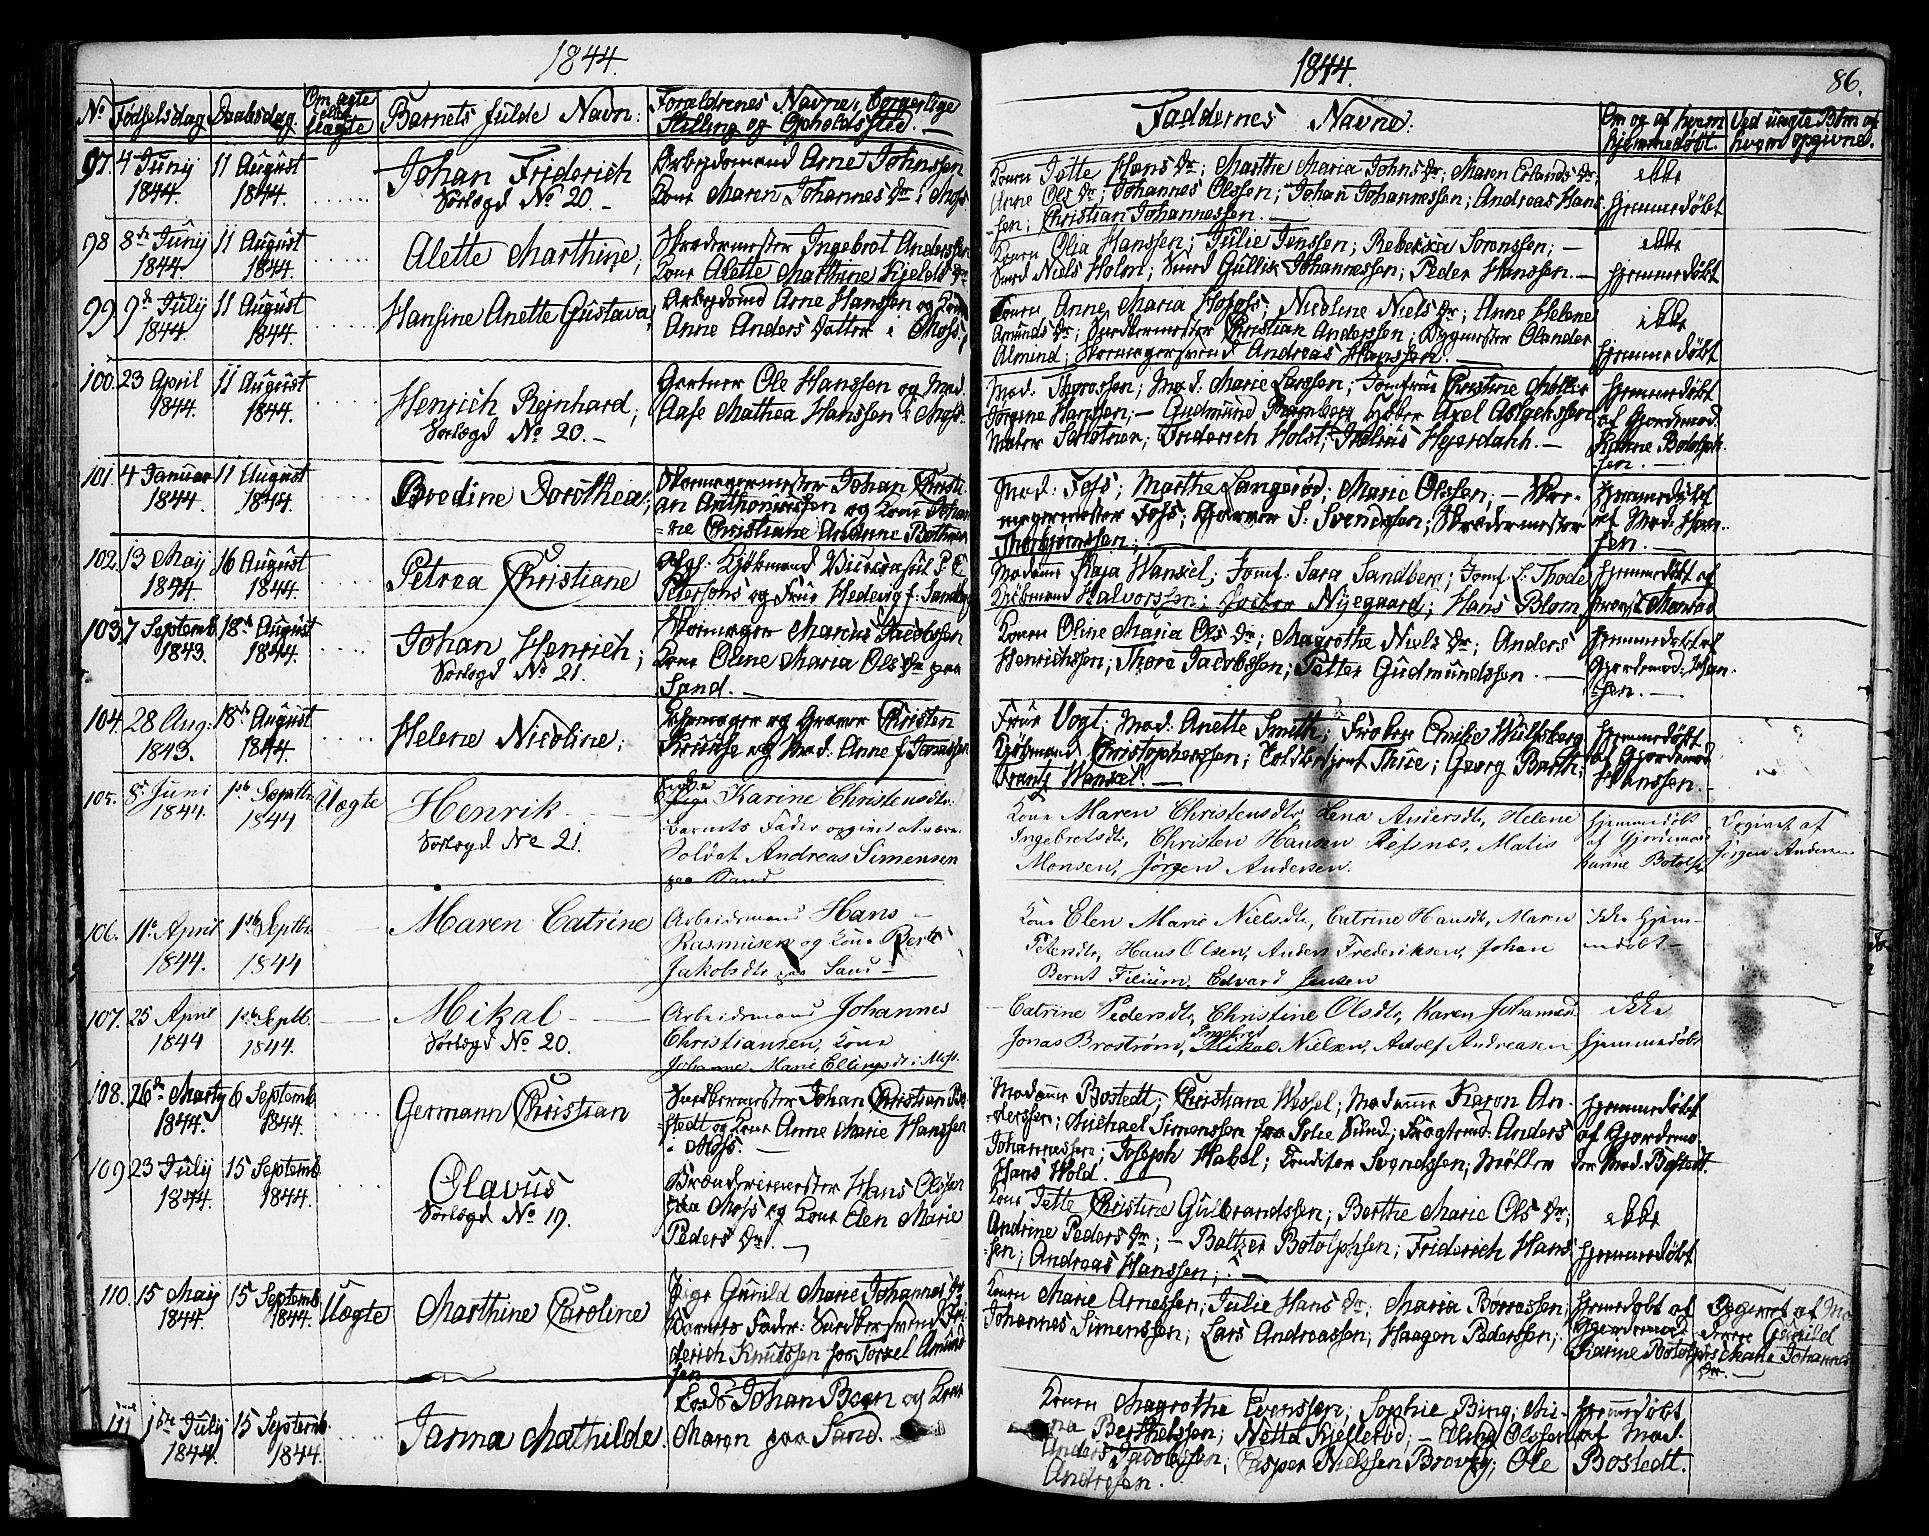 1844.
No Fødselsdag. Daabsdag. Om ægte eller Uægte Barnets fulde Navn: Forældrenes Navne, borgerlige
Stilling og Opholdssted.
97. 4 Juny 1844. 11 August 1844. Johan Friderich
Vorlægd No 20.
Arbejdsmand Arne Johnssen
Kone Maren Johannes Dr i Moss.
98 8de Juny 1844. 11 August 1844. Alette Marthine;
Skrædermester Ingebrot Anderssen
Kone Alette Mathine Kjelds Dr
99. 9de July 1844. 11 August 1844. Hansine Anette Gustava;
Arbejdsmd Arne Hanssen og Kone
Anne Anders Datter i Moss,
100. 23 April 1844. 11 August 1844. Henrich Rejnhard;
Vorlægd No 20.
Gartner Ole Hanssen og Mad.
Aase Mathea Hanssen i Moss.
101. 4 Januar 1844. 11 August 1844. Bredine Dorothea;
Skomagermester Johan Christi-
an Anthonissen og Kone Johan-
ne Christiane
102. 13 Maij 1844 16 August 1844. Petrea Christiane
Kjøbmand Viceconsul P. C.
Petersons og Frue Hedevig f. Sandberg
103. 7 Septemb. 1843. 18de August 1844. Johan Henrich;
Vorlægd No 21.
Skomager Marcus Jacobssen
Kone Oline Maria Ols Dr paa
Sand.
104. 28 Aug. 1843. 18de August 1844. Helene Nicoline;
og Graver Christen
og Mad. Anne f. Jonassen
105. 8de Juni 1844. 1ste Septbr 1844 Uægte Henrik
Vorlægd No 21.
Pige Karine Christensdtr.
Barnets Fader opgivet at være
Soldat Andreas Simensen
paa Sand
106. 11te April 1844. 1ste Septbr 1844 Maren Catrine
Arbeidsmand Hans
Rasmusen og Kone Berte
Jakobsdtr paa Sand
107. 25 April 1844 1ste Septb. 1844. Mikal
Vorlægd No 20.
Arbeidsmand Johannes
Christiansen, Kone
Johanne Marie Ellingsdtr i Moss.
108. 26de Marty 1844. 6 Septemb. 1844. Germann Christian
Snedkermester Johan Christian Bo-
stedt og Kone Anne Marie Hanssen
i Moss.
109 23 July 1844. 15 Septemb. 1844. Olavus
Vorlægd No 19.
Brænderiemester Hans Olssen
paa Moss og Kone Elen Marie
Peders Dr.
110. 15 Maij 1844. 15 Septemb. 1844. Uægte Marthine Caroline
Pige Gunild Marie Johannes Dr
Barnets Fader: Snedkersvend Fri-
derich Knutssen fra Torkel Amund-
sen
111 1ste July 1844. 15 Septemb. 1844. Janna Mathilde.
Lods Johan Bern og Kone
Maren paa Sand.
1844.
86.
Faddernes Navne:
Om og af hvem hjemmedøbt. Ved uægte Børn af hvem opgivne.
Konen Jette Hans Dr; Marthe Maria Johns Dr; Maren Erlands Dr;
Anne Ols Dr; Johannes Olssen; Johan Johannessen; Andreas Hans-
sen; Christian Johannessen.
ikke hjemmedøbt
Konen Olia Hanssen; Julie Jenssen; Rebekka Sørenssen;
Svend Niels Holm; Svend Gullik Johannessen; Peder Hanssen.
ikke hjemmedøbt
Konen Anne Maria; Nicoline Niels Dr; Anne Helene
Amunds Dr; Snedkermester Christian Anderssen; Bygmester Olander
Almind; Skomagersvend Andreas Hanssen.
ikke hjemmedøbt
Mad. Thorassen; Mad. Marie Larssen; Jomfrue Christine Møller
Jørgine Hanssen; Gudmund; Axel Aslakssen
Friderich Holst; Heyerdahl.
hjemmedøbt af Gjordemod. Karine Botolph-sen.
Mad. Foss; Marthe Langerød; Marie Olssen; Sko-
magermester Foss; Farver S. Svendssen; Skrædermester
Thorbjørnssen.
hjemmedøbt af Mad. Hans-sen.
Madame Kaja Wankel; Jomf. Sara Sandberg; Jomf. S. Thode
Kjøbmand Halvorssen; Doctor Nyegaard; Hans Blom.
hjemmedøbt af Provst Monrad
Konen Oline Maria Ols Dr; Magrethe Niels Dr; Anders
Henrichssen; Thore Jacobssen; Petter Gudmundssen.
hjemmedøbt af Gjordemod. Johan-ssen.
Frue Vogt; Mad. Anette Smith; Frøken Emilie Wulfsberg
Kjøbmand Christopherssen; Toldbetjent Thue; Georg Barth;
Frantz Wankel.
hjemmedøbt af Gjordemod. Hanssen.
Kone Maren Christensdtr, Lena Andersdtr, Helene
Ingebretsdtr, Christen Hansen Refsnes, Matis
Monsen, Jørgen Andersen.
hjemmedøbt af Gjordemod. Karine Botolfs Opgivet af Jørgen Andersen
Kone Elen Marie Nielsdtr, Catrine Hansdtr, Maren
Petersdtr, Hans Olsen, Anders Frederiksen, Johan
Bernt Filium, Edvard Jensen
ikke hjem-medøbt
Catrine Pedersdtr, Christine Olsdtr, Karen Johannesd.
Jonas Brostrøm, Ingebret Mikal Nielsen, Adolf Andreasen
ikke hjemmedøbt
Madame Bostedt; Christiane Wessel; Madame Karen An-
derssen; Michael Simenssen fra; Anders
Johannessen; Joseph Habel; Conditor Svendssen; Møller
Hans Wold.
hjemmedøbt af Gjordemo-der Mad. Bostedt.
Kone Jette Christine Gulbrandssen; Berthe Marie Ols Dr;
Andrine Peders Dr; Baltzer Botolphsen; Friderich Hans-
sen; Andreas Hanssen;
ikke hjemmedøbt
Konen Marie Arnessen; Julie Hans Dr; Maria Børresen;
Johannes Simenssen; Lars Andreassen; Haagen Pederssen;
hjemmedøbt af Gjordemod. Karine Botolphs Opgivet af Mo-deren Gunild Marie Johannes Dr.
Konen Magrethe Evenssen; Sophie Bing; Mi-
na Berthelssen; Netta Kjellerød; Olssen
Anders Jacobssen; Casper Nielssen Brevig; Ole
Andresen.
hjemmedøbt af Mad. Bostedt.